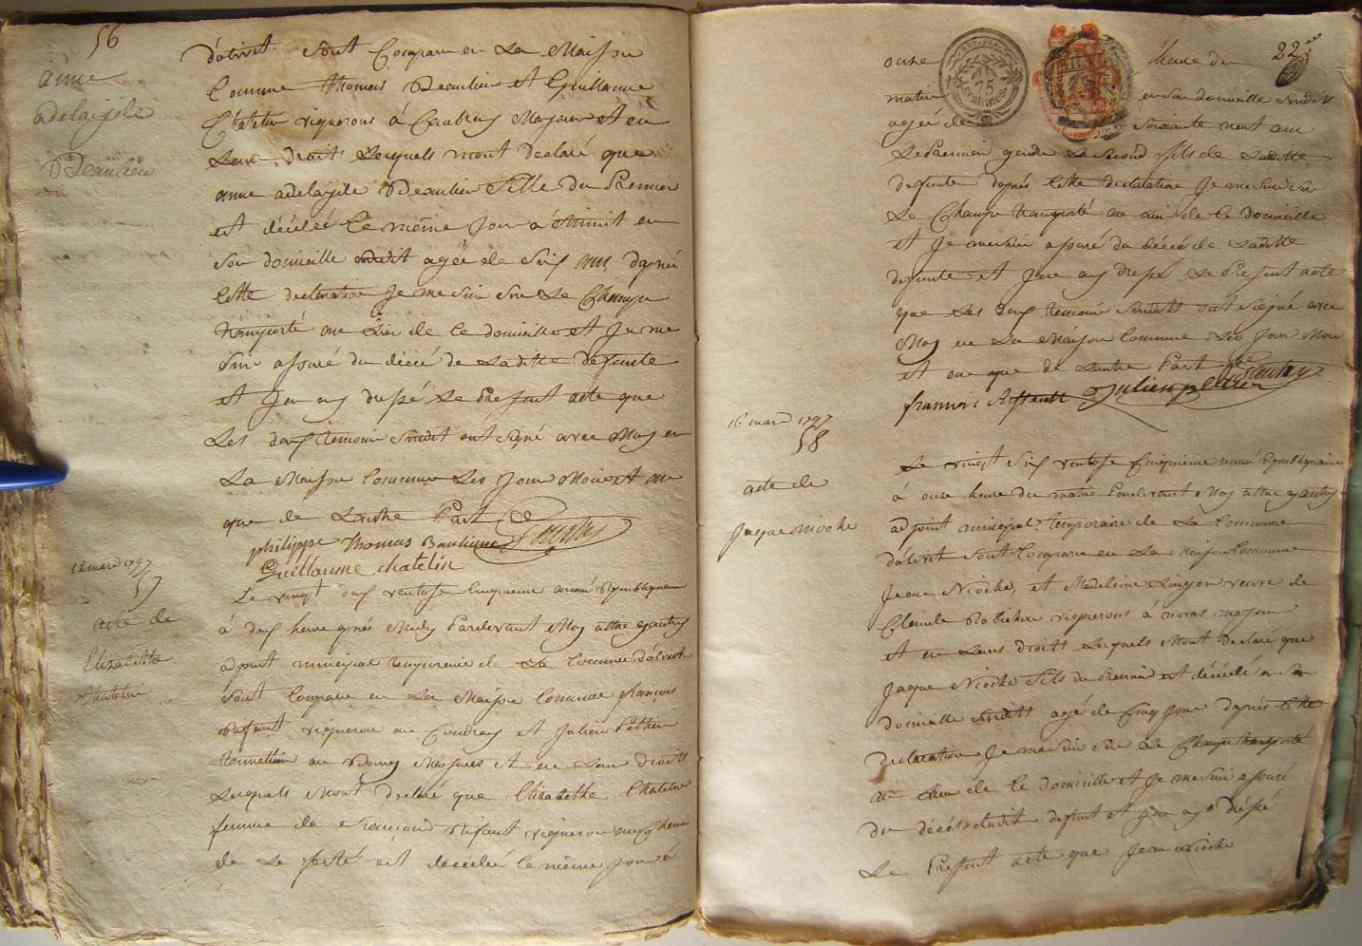 56
anne
adelayde
Beaulieu
d'olivet sont Comparu en La Maison
Commune thomas Beaulieu et Guillaume
vignerons à Majeurs et en
Leur droit Lesquels m'ont declaré que
anne adelayde Beaulieu fille du Premier
est décédée Le même jour a minuit en
Son domicille susdit agée de Six ans, dapré
Cette declaration Je me suis Sur Le Champ
transporté au Lieu de Ce domicille et Je me
Suis assuré du décé de Laditte defunte
et J'en ay dressé Le Présent acte que
Les deux temoins Susdit ont signé avec Moy en
La Maison Commune Les Jour Mois et an
que de Lautre Part
philippe Thomas Baulieu
Guillaume chatelin
12 mars 1797
57
acte de
Elizabethe
Chatelin
Le vingt deux ventose Cinquieme année Republiquaine
à deux heure après Midy Pardevant Moy
adjoint municipal temporaire de La Commune d'olivet
Sont Comparu en La Maison Commune françois
vigneron au Coudray et Julien Peltier
tonnellier au Bourg Majeurs et en Leur droits
Lesquels M'ont declaré que Elizabethe Chatelin
femme de François vigneron
de La ferté est decedée le même jour à
22
onze heure du
matin en Son domicille Susdit
agée de Soixante neuf ans
Le Premier gendre Le Second fils de Laditte
defunte daprés Cette declaration Je me Suis Sur
Le Champ transporté au Lieu de Ce domicille
et Je me suis assuré du décés de Laditte
defunte et J'en ay dressé Le Present acte
que Les deux temoins Susdit ont Signé avec
Moy en La Maison Commune Les Jour Mois
et an que de Lautre Part
Julien peltier
16 mars 1797
58
acte de
Jaque nioche
Le vingt Six ventose Cinquieme année Republiquaine
à onze heure du matin Pardevant Moy
adjoint municipal temporaire de La Commune
d'olivet Sont Comparu en La Maison Commune
Jean Nioche, et Madeleine veuve de
vignerons à majeurs
et en Leurs droits Lesquels M'ont Declaré que
Jaque Nioche fils du Premier est décédé en Son
domicille Susdit agé de Cinq Jour daprés Cette
Declaration Je me suis Sur Le Champ transporté
au Lieu de Ce domicille et Je me suis assuré
du décés dudit defunt et J'en ay dréssé
Le Présent acte que Jean nioche